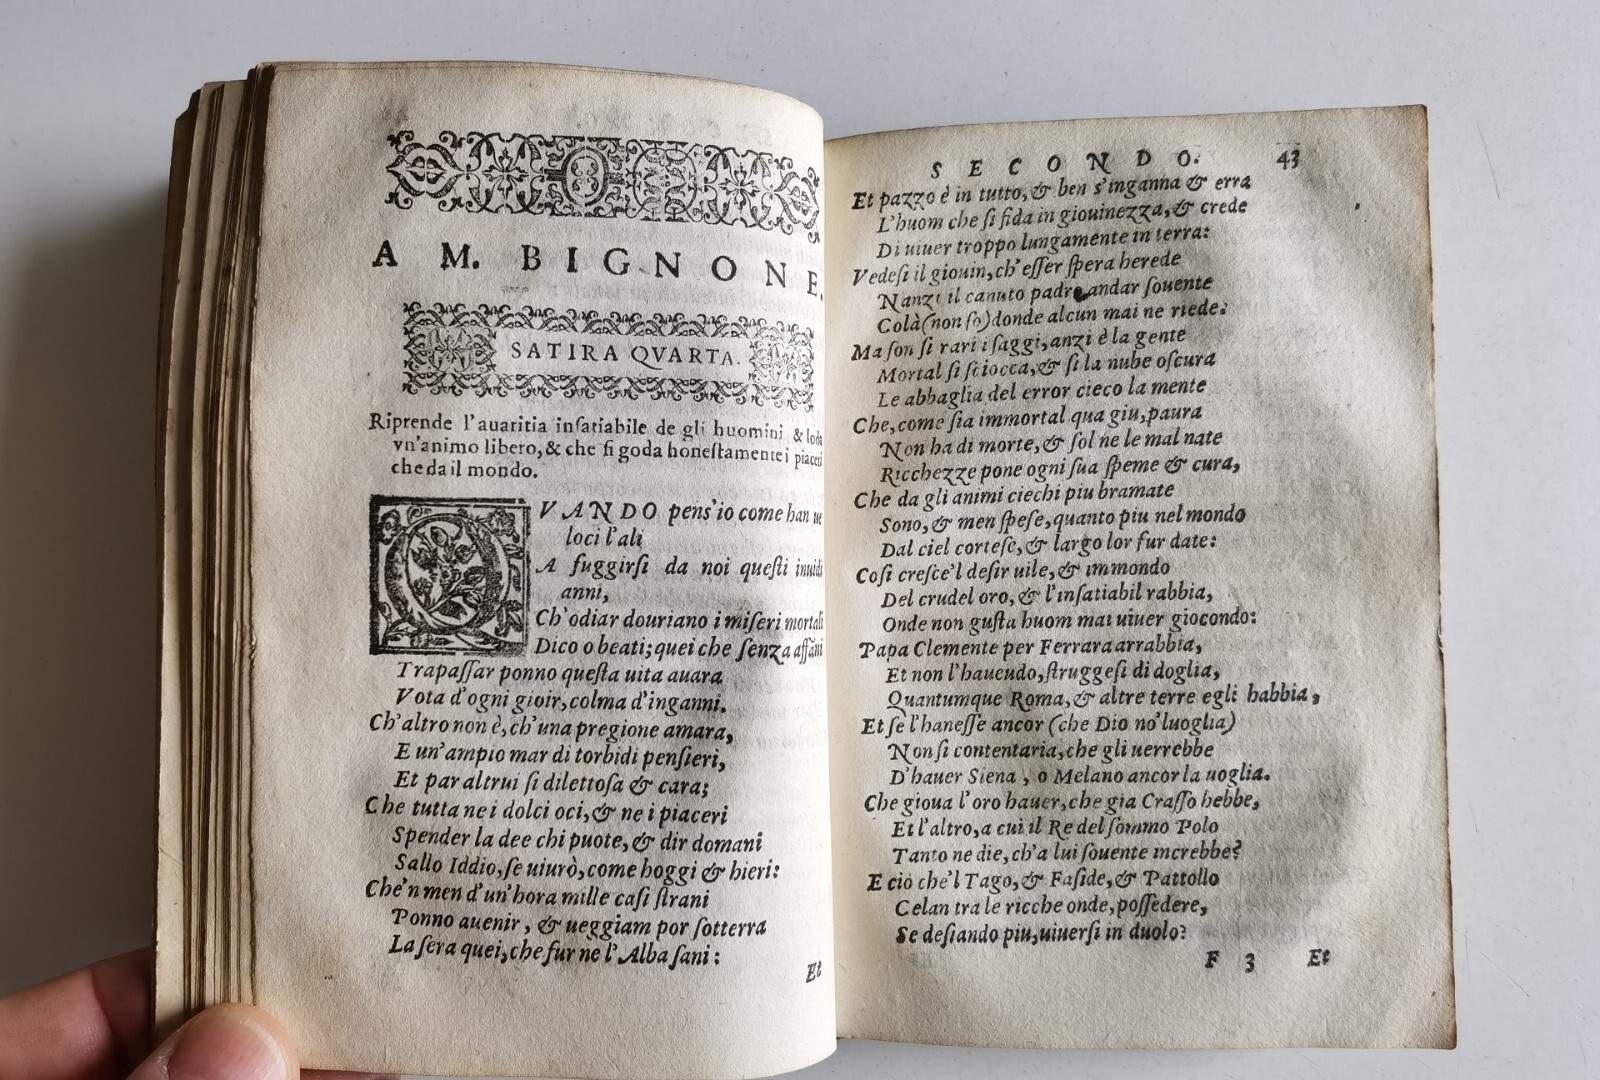 A M. BIGNONE.
SATIRA QVARTA.
Riprende l'auaritia insatiabile de gli huomini & loda
vn'animo libero, & che si goda honestamente i piaceri
che da il mondo.
QVANDO pens'io come han ue
loci l'ali
A fuggirsi da noi questi inuidi
anni,
Ch'odiar douriano i miseri mortali
Dico o beati; quei che senza affāni
Trapassar ponno questa uita auara
Vota d'ogni gioir, colma d'inganni.
Ch'altro non è, ch'una pregione amara,
E un'ampio mar di torbidi pensieri,
Et par altrui si dilettosa & cara;
Che tutta ne i dolci oci, & ne i piaceri
Spender la dee chi puote, & dir domani
Sallo Iddio, se uiurò, come hoggi & hieri:
Che'n men d'un'hora mille casi strani
Ponno auenir, & ueggiam por sotterra
La sera quei, che fur ne l'Alba sani:
Et
SECONDO. 43
Et pazzo è in tutto, & ben s'inganna & erra
L'huom che si fida in giouinezza, & crede
Di uiuer troppo lungamente in terra:
Vedesi il giouin, ch'esser spera herede
Nanzi il canuto padre andar souente
Colà (non so) donde alcun mai ne riede:
Ma son si rari i saggi, anzi è la gente
Mortal si sciocca, & si la nube oscura
Le abbaglia del error cieco la mente
Che, come sia immortal qua giu, paura
Non ha di morte, & sol ne le mal nate
Ricchezze pone ogni sua speme & cura,
Che da gli animi ciechi piu bramate
Sono, & men spese, quanto piu nel mondo
Dal ciel cortese, & largo lor fur date:
Cosi cresce'l desir uile, & immondo
Del crudel oro, & l'insatiabil rabbia,
Onde non gusta huom mai uiuer giocondo:
Papa Clemente per Ferrara arrabbia,
Et non l'hauendo, struggesi di doglia,
Quantumque Roma, & altre terre egli habbia,
Et se l'hauesse ancor (che Dio no'l uoglia)
Non si contentaria, che gli uerrebbe
D'hauer Siena, o Melano ancor la uoglia.
Che gioua l'oro hauer, che gia Crasso hebbe,
Et l'altro, a cui il Re del sommo Polo
Tanto ne die, ch'a lui souente increbbe?
E ciò che'l Tago, & Faside, & Pattollo
Celan tra le ricche onde, possedere,
Se desiando piu, uiuersi in duolo?
F 3 Et